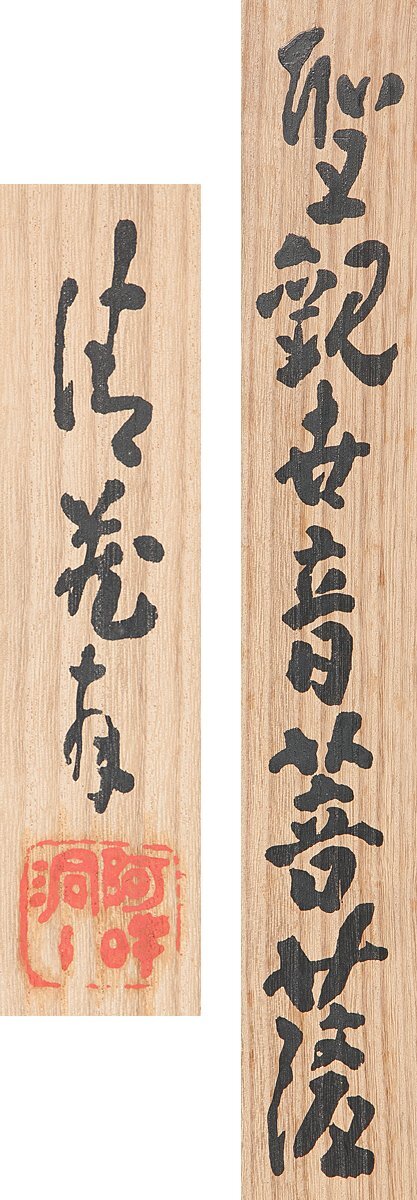 聖観世音菩薩
清
阿吽洞